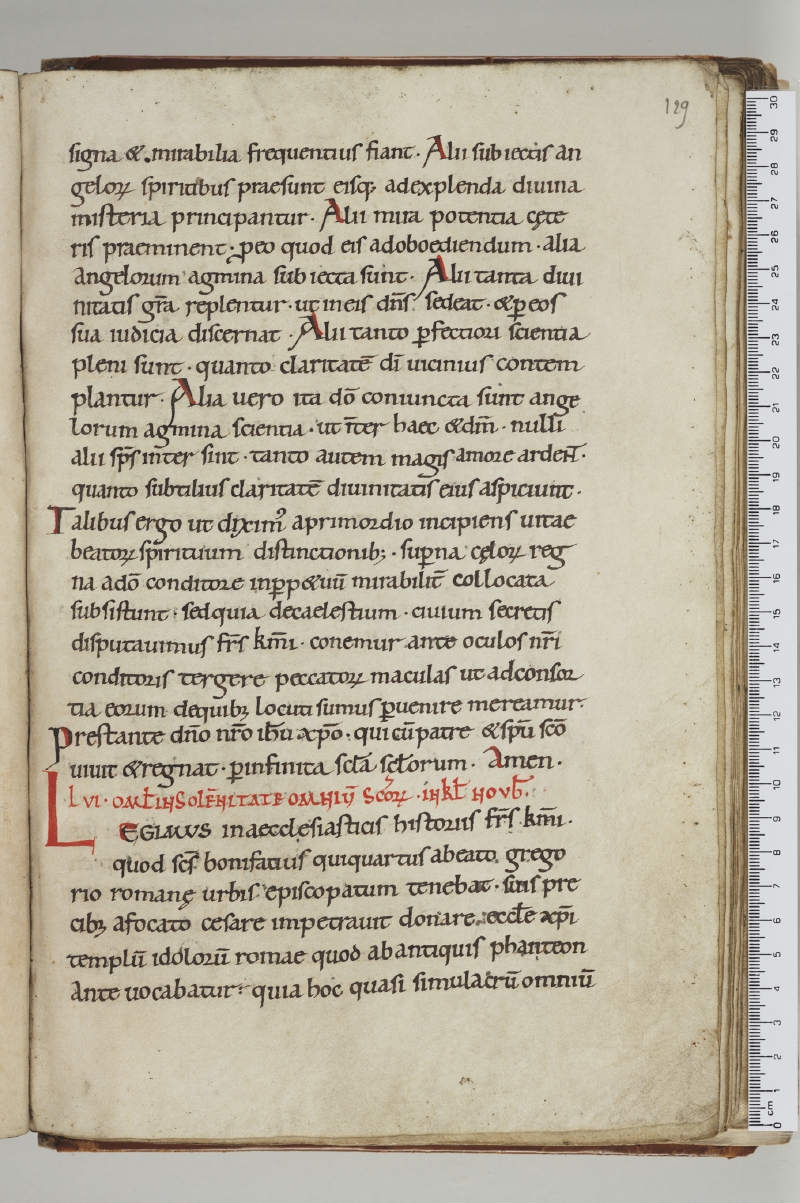 129
signa &. mirabilia frequentius fiant · Alii subiectis an
geloꝝ spiritibus praesunt eisq; adexplenda diuina
misteria principantur · Alii mira potentia cęte
ris praeminent · ꝓeo quod eis adoboediendum · alia
angelorum agmina subiecta sunt · Alii tanta diui
nitatis gr̄a replentur · ut ineis dn̄s sedeat · &ꝑ eos
sua iudicia discernat · Alii tanto ꝑfectiori scientia
pleni sunt · quanto claritatē dī uicinius contem
plantur · Alia uero ita dō coniuncta sunt ange
lorum agmina scientia · ut īter haec &dm̄ · nulli
alii sp̄s inter sint · tanto autem magis amore ardeN̄ ·
quanto subtilius claritatē diuinitatis eius aspiciunt ·
Talibus ergo ut diximꝰ aprimordio incipiens uitae
beatoꝝ spirituum distinctionib; · suꝑna cęloꝝ reg
na adō conditore inꝑp&uū mirabilit̄ collocata
subsistunt · sedquia decaelestium · ciuium secretis
disputauimus fr̄s km̄i · conemur ante oculos nr̄i
conditoris tergere peccatoꝝ maculas ut adconsor
tia eorum dequib; locuti sumus ꝑuenire mereamur ·
Prestante dn̄o nr̄o ih̄u xp̄o · qui cū patre &sp̄u sc̄o
uiuit &regnat · ꝑinfinita sc̄la sc̄lorum · Amen ·
LVI · OML̄ INSOLĒNITATE OMNIŪ SC̄OꝜ · INKL̄ NOVB̄ ·
LEGIMUS inaecclesiasticis historiis fr̄s km̄i ·
quod sc̄s bonifatius quiquartus abeato grego
rio romanę urbis episcopatum tenebat · suis pre
cib; afocato cesare impetrauit donare eccl̄e xp̄i
templū idolorū romae quod abantiquis phanteon
Ante uocabatur · quia hoc quasi simulacrū omniū